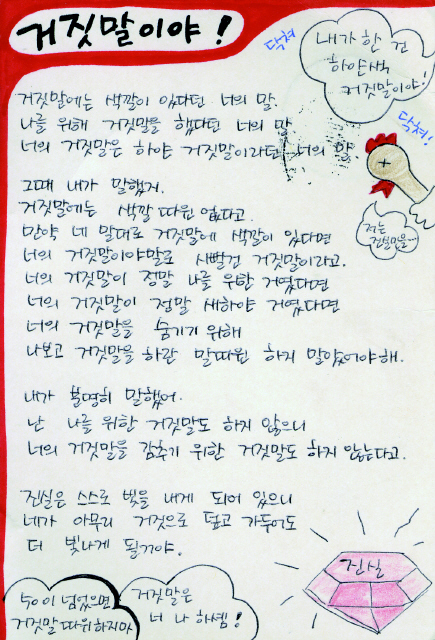 거짓말이야!
닥쳐
내가 한 건
하얀색
거짓말이야!
닥쳐!
거짓말에는 색깔이 있다던 너의 말.
나를 위해 거짓말을 했다던 너의 말
너의 거짓말은 하얀 거짓말이라던 너의 말.
저는
그때 내가 말했지.
거짓말에는 색깔 따윈 없다고.
만약 네 말대로 거짓말에 색깔이 있다면
너의 거짓말이야말로 시뻘건 거짓말이라고.
너의 거짓말이 정말 나를 위한 거였다면
너의 거짓말이 정말 새하얀 거였다면
너의 거짓말을 숨기기 위해
나보고 거짓말을 하란 말따윈 하지 말았어야해.
내가 분명히 말했어.
난 나를 위한 거짓말도 하지 않으니
너의 거짓말을 감추기 위한 거짓말도 하지 않는다고.
진실은 스스로 빛을 내게 되어 있으니
네가 아무리 거짓으로 덮고 가두어도
더 빛나게 될거야.
진실
50이 넘었으면
거짓말 따위 하지마
거짓말은
너 나 하셈!